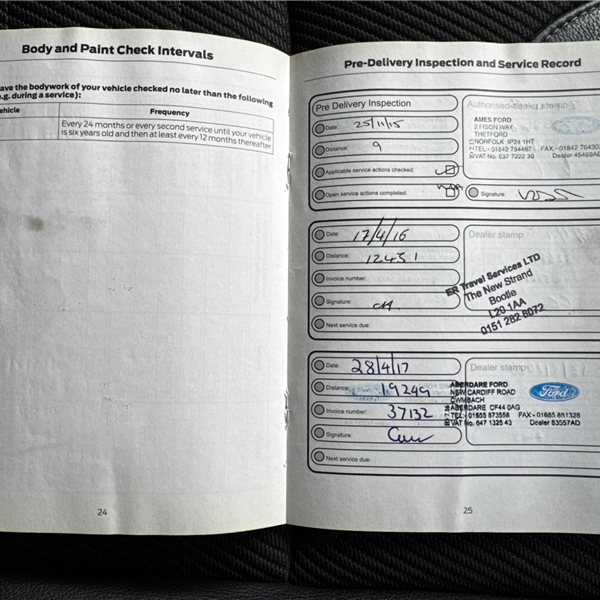 Body and Paint Check Intervals
ave the bodywork of your vehicle checked no later than the following
.g. during a service):
ehicle Frequency
Every 24 months or every second service until your vehicle
is six years old and then at least every 12 months thereafter
24
Pre-Delivery Inspection and Service Record
Pre Delivery Inspection
Date: 25/11/15
Distance: 9
Applicable service actions checked:
Open service actions completed:
Authorised dealer stamp
AMES FORD
2 FISON WAY
THETFORD
NORFOLK IP24 1HT
TEL - 01842 764467 FAX - 01842 76430
VAT No. 637 7222 30 Dealer 45469AE
Signature:
Date: 17/4/16
Distance: 12451
Invoice number:
Signature:
Next service due:
Dealer stamp
ER Travel Services LTD
The New Strand
Bootle
L20 1AA
0151 282 8072
Date: 28/4/17
Distance: 19249
Invoice number: 37132
Signature:
Next service due:
Dealer stamp
ABERDARE FORD
NEW CARDIFF ROAD
CWMBACH
ABERDARE CF44 0AG
TEL - 01685 873558 FAX - 01685 881328
VAT No. 647 1325 43 Dealer 83557AD
Ford
25